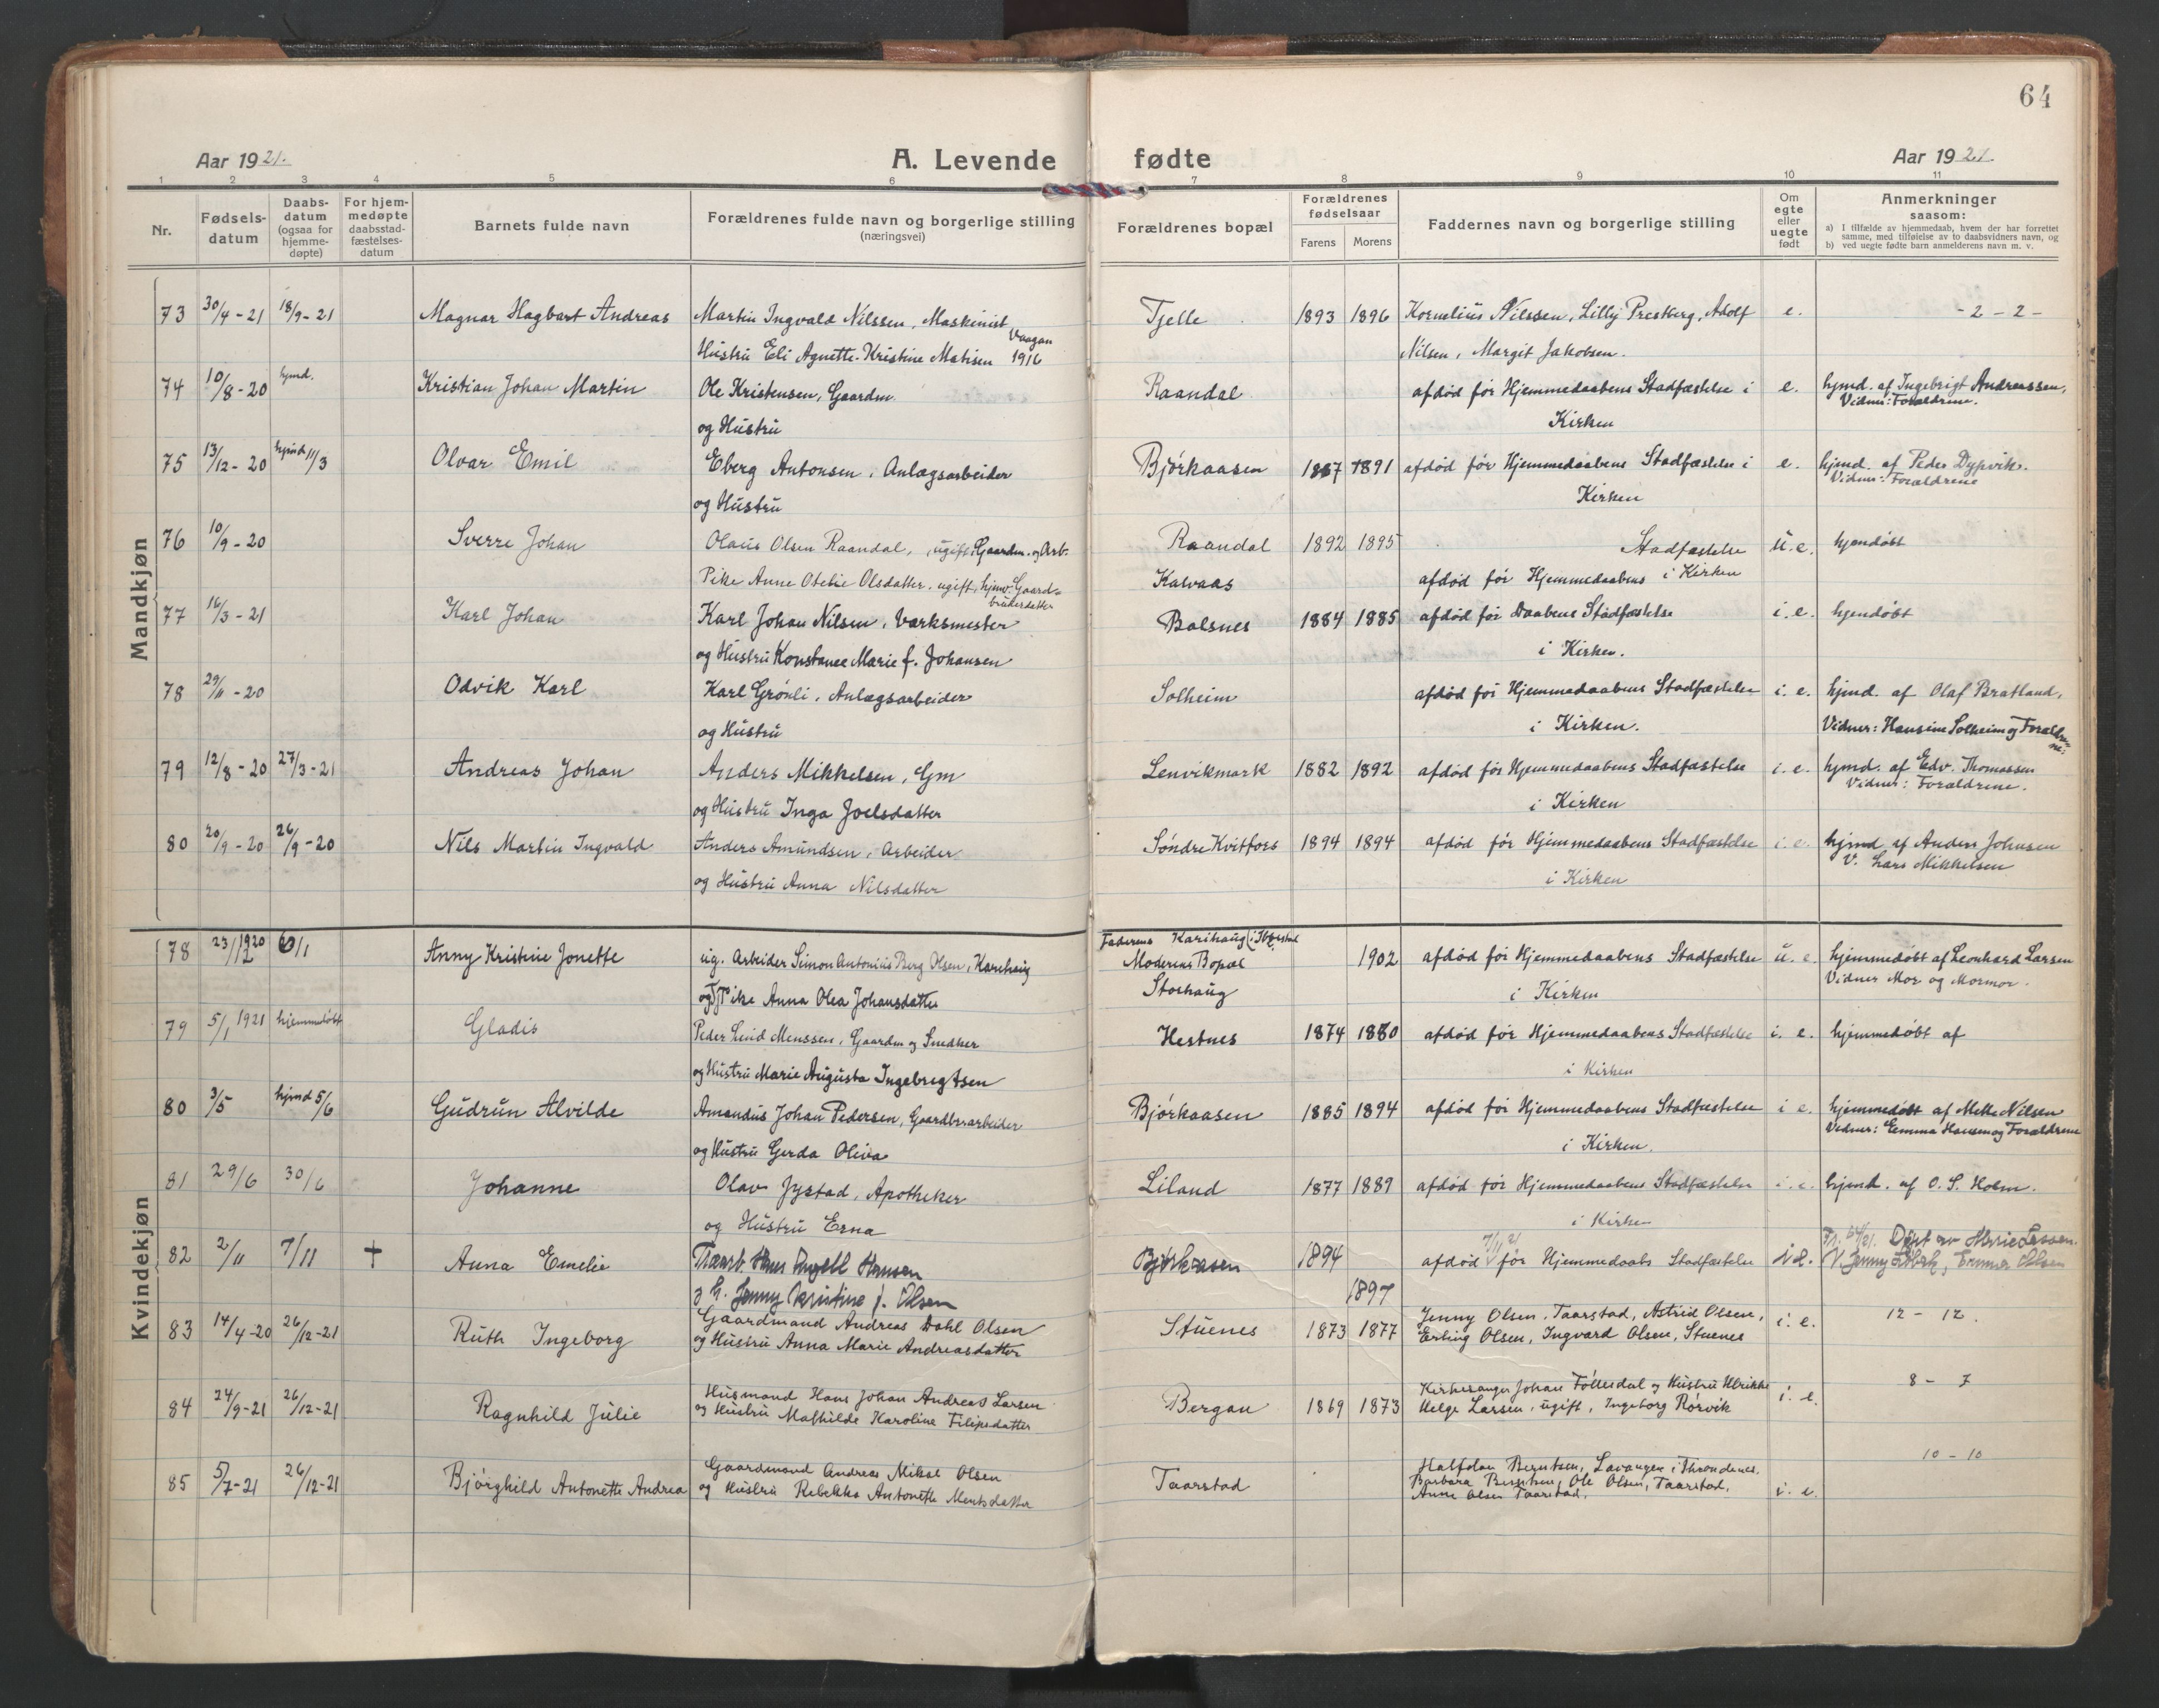 64
Aar 1921. A. Levende fødte Aar 1921.
1 2 3 4 5 6 7 8 9 10 11
Nr.
Fødsels-
datum
Daabs-
datum
(ogsaa for
hjemme-
døpte)
For hjem-
medøpte
daabsstad-
fæstelses-
datum
Barnets fulde navn
Forældrenes fulde navn og borgerlige stilling
(næringsvei)
Forældrenes bopæl
Forældrenes
fødselsaar
Farens Morens
Faddernes navn og borgerlige stilling
Om
egte
eller
uegte
født
Anmerkninger
saasom:
a) I tilfælde av hjemmedaab, hvem der har forrettet
samme, med tilføielse av to daabsvidners navn, og
b) ved uegte fødte barn anmelderens navn m. v.
Mandkjøn
73 30/4-21 18/9-21 Magnar Hagbart Andreas Martin Ingvald Nilssen, Maskinist Tjelle 1893 1896 Kornelius Nilssen, Lilly Presberg, Adolf e. -2-2-
Hustru Eli Agnette Kristine Matisen Vaagan 1916 Nilsen, Margit Jakobsen.
74 10/8-20 hjmd. Kristian Johan Martin Ole Kristensen, Gaardm. Raandal afdød før Hjemmedaabens Stadfæstelse i e. hjmd. af Ingebrigt Andreassen,
og Hustru Kirken Vidner: Forældrene.
75 13/12-20 hjmd 11/3 Olvar Emil Eberg Antonsen, Anlægsarbeider Bjørkaasen 1887 1891 afdød før Hjemmedaabens Stadfæstelse i e. hjmd. af Peder Dypvik.
og Hustru Kirken Vidner: Forældrene
76 10/9-20 Sverre Johan Olaus Olsen Raandal, ugift, Gaardm. og Arb. Raandal 1892 1895 Stadfæstelse u.e. hjemdøbt
Pike Anne Otelie Olsdatter, ugift, hjmv. Gaard-
brukerdatter Kalvaas afdød før Hjemmedaabens i Kirken
77 16/3-21 Karl Johan Karl Johan Nilsen, Værksmester Balsnes 1884 1885 afdød før Daabens Stadfæstelse i.e. hjemdøbt
og Hustru Konstance Marie f. Johansen i Kirken.
78 29/11-20 Odvik Karl Karl Grønli, Anlægsarbeider Solheim afdød før Hjemmedaabens Stadfæstelse i.e. hjmd. af Olaf Bratland,
og Hustru i Kirken. Vidner: Hansine Solheim og Forældrene.
79 12/8-20 27/3-21 Andreas Johan Anders Mikkelsen, Gm Lenvikmark 1882 1892 afdød før Hjemmedaabens Stadfæstelse i.e. hjmd. af Edv. Thomassen
og Hustru Inga Joelsdatter i Kirken Vidner: Forældrene.
80 20/9-20 26/9-20 Nils Martin Ingvald Anders Amundsen, Arbeider Søndre Kvitfors 1894 1894 afdød før Hjemmedaabens Stadfæstelse i.e. hjmd af Anders Johnsen
og Hustru Anna Nilsdatter i Kirken V. Lars Mikkelsen
Kvindekjøn
78 23/12 1920 /1 Anny Kristine Jonette ug. Arbeider Simon Antonius Berg Olsen, Karihaug Faderens Karihaug i Ibestad
Moderens Bopæl 1902 afdød før Hjemmedaabens Stadfæstelse u.e. hjemmedøbt af Leonhard Larsen
og Pike Anna Olea Johansdatter Storhaug i Kirken Vidner Mor og Mormor.
79 5/1 1921 hjemmedøbt Gladis Peder Lund Menssen, Gaardm og Snedker Hestnes 1874 1880 afdød før Hjemmedaabens Stadfæstelse i.e. hjemmedøbt af
og Hustru Marie Augusta Ingebregtsen i Kirken
80 3/5 hjmd 5/6 Gudrun Alvilde Amandus Johan Pedersen, Gaardbr.arbeider Bjørkaasen 1885 1894 afdød før Hjemmedaabens Stadfæstelse i e. hjemmedøbt af Mette Nilsen
og Hustru Gerda Oliva i Kirken. Vidner: Emma Hansen og Forældrene
81 29/6 30/6 Johanne Olav Jystad, Apotheker Liland 1877 1889 afdød før Hjemmedaabens Stadfæstelse i.e. hjmd. af O. S. Holm.
og Hustru Erna i Kirken
82 2/11 7/11 + Anna Emelie Træarb. Hans Ingvall Hansen Bjørkaasen 1894 afdød 7/11 21 før Hjemmedaabs Stadfæstelse i e. Døpt av Marie Larsen.
g. h. Jenny Kristine f. Olsen 1897 V. Jenny
83 14/4-20 26/12-21 Ruth Ingeborg Gaardmand Andreas Dahl Olsen Stuenes 1873 1877 Jenny Olsen, Taarstad, Astrid Olsen, i. e. 12 - 12.
og Hustru Anna Marie Andreasdatter Erling Olsen, Ingvard Olsen, Stuenes
84 24/9-21 26/12-21 Ragnhild Julie Husmand Hans Johan Andreas Larsen Bergan 1869 1873 Kirkesanger Johan Føllesdal og Hustru Ulrikke i. e. 8 - 7
og Hustru Mathilde Karoline Filipsdatter Helge Larsen, ugift, Ingeborg Rørvik
85 5/7-21 26/12-21 Bjørghild Antonette Andrea Gaardmand Andreas Mikal Olsen Taarstad Halfdan Berntsen, Lavangen i Throndenes. 10 - 10
og Hustru Rebekka Antonette Mentsdatter Barbara Berntsen, Ole Olsen, Taarstad,
Anne Olsen Taarstad. i. e.